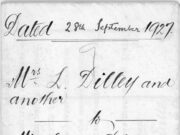 Dated 28th September 1927.
Mrs L. Dilley and
another
to